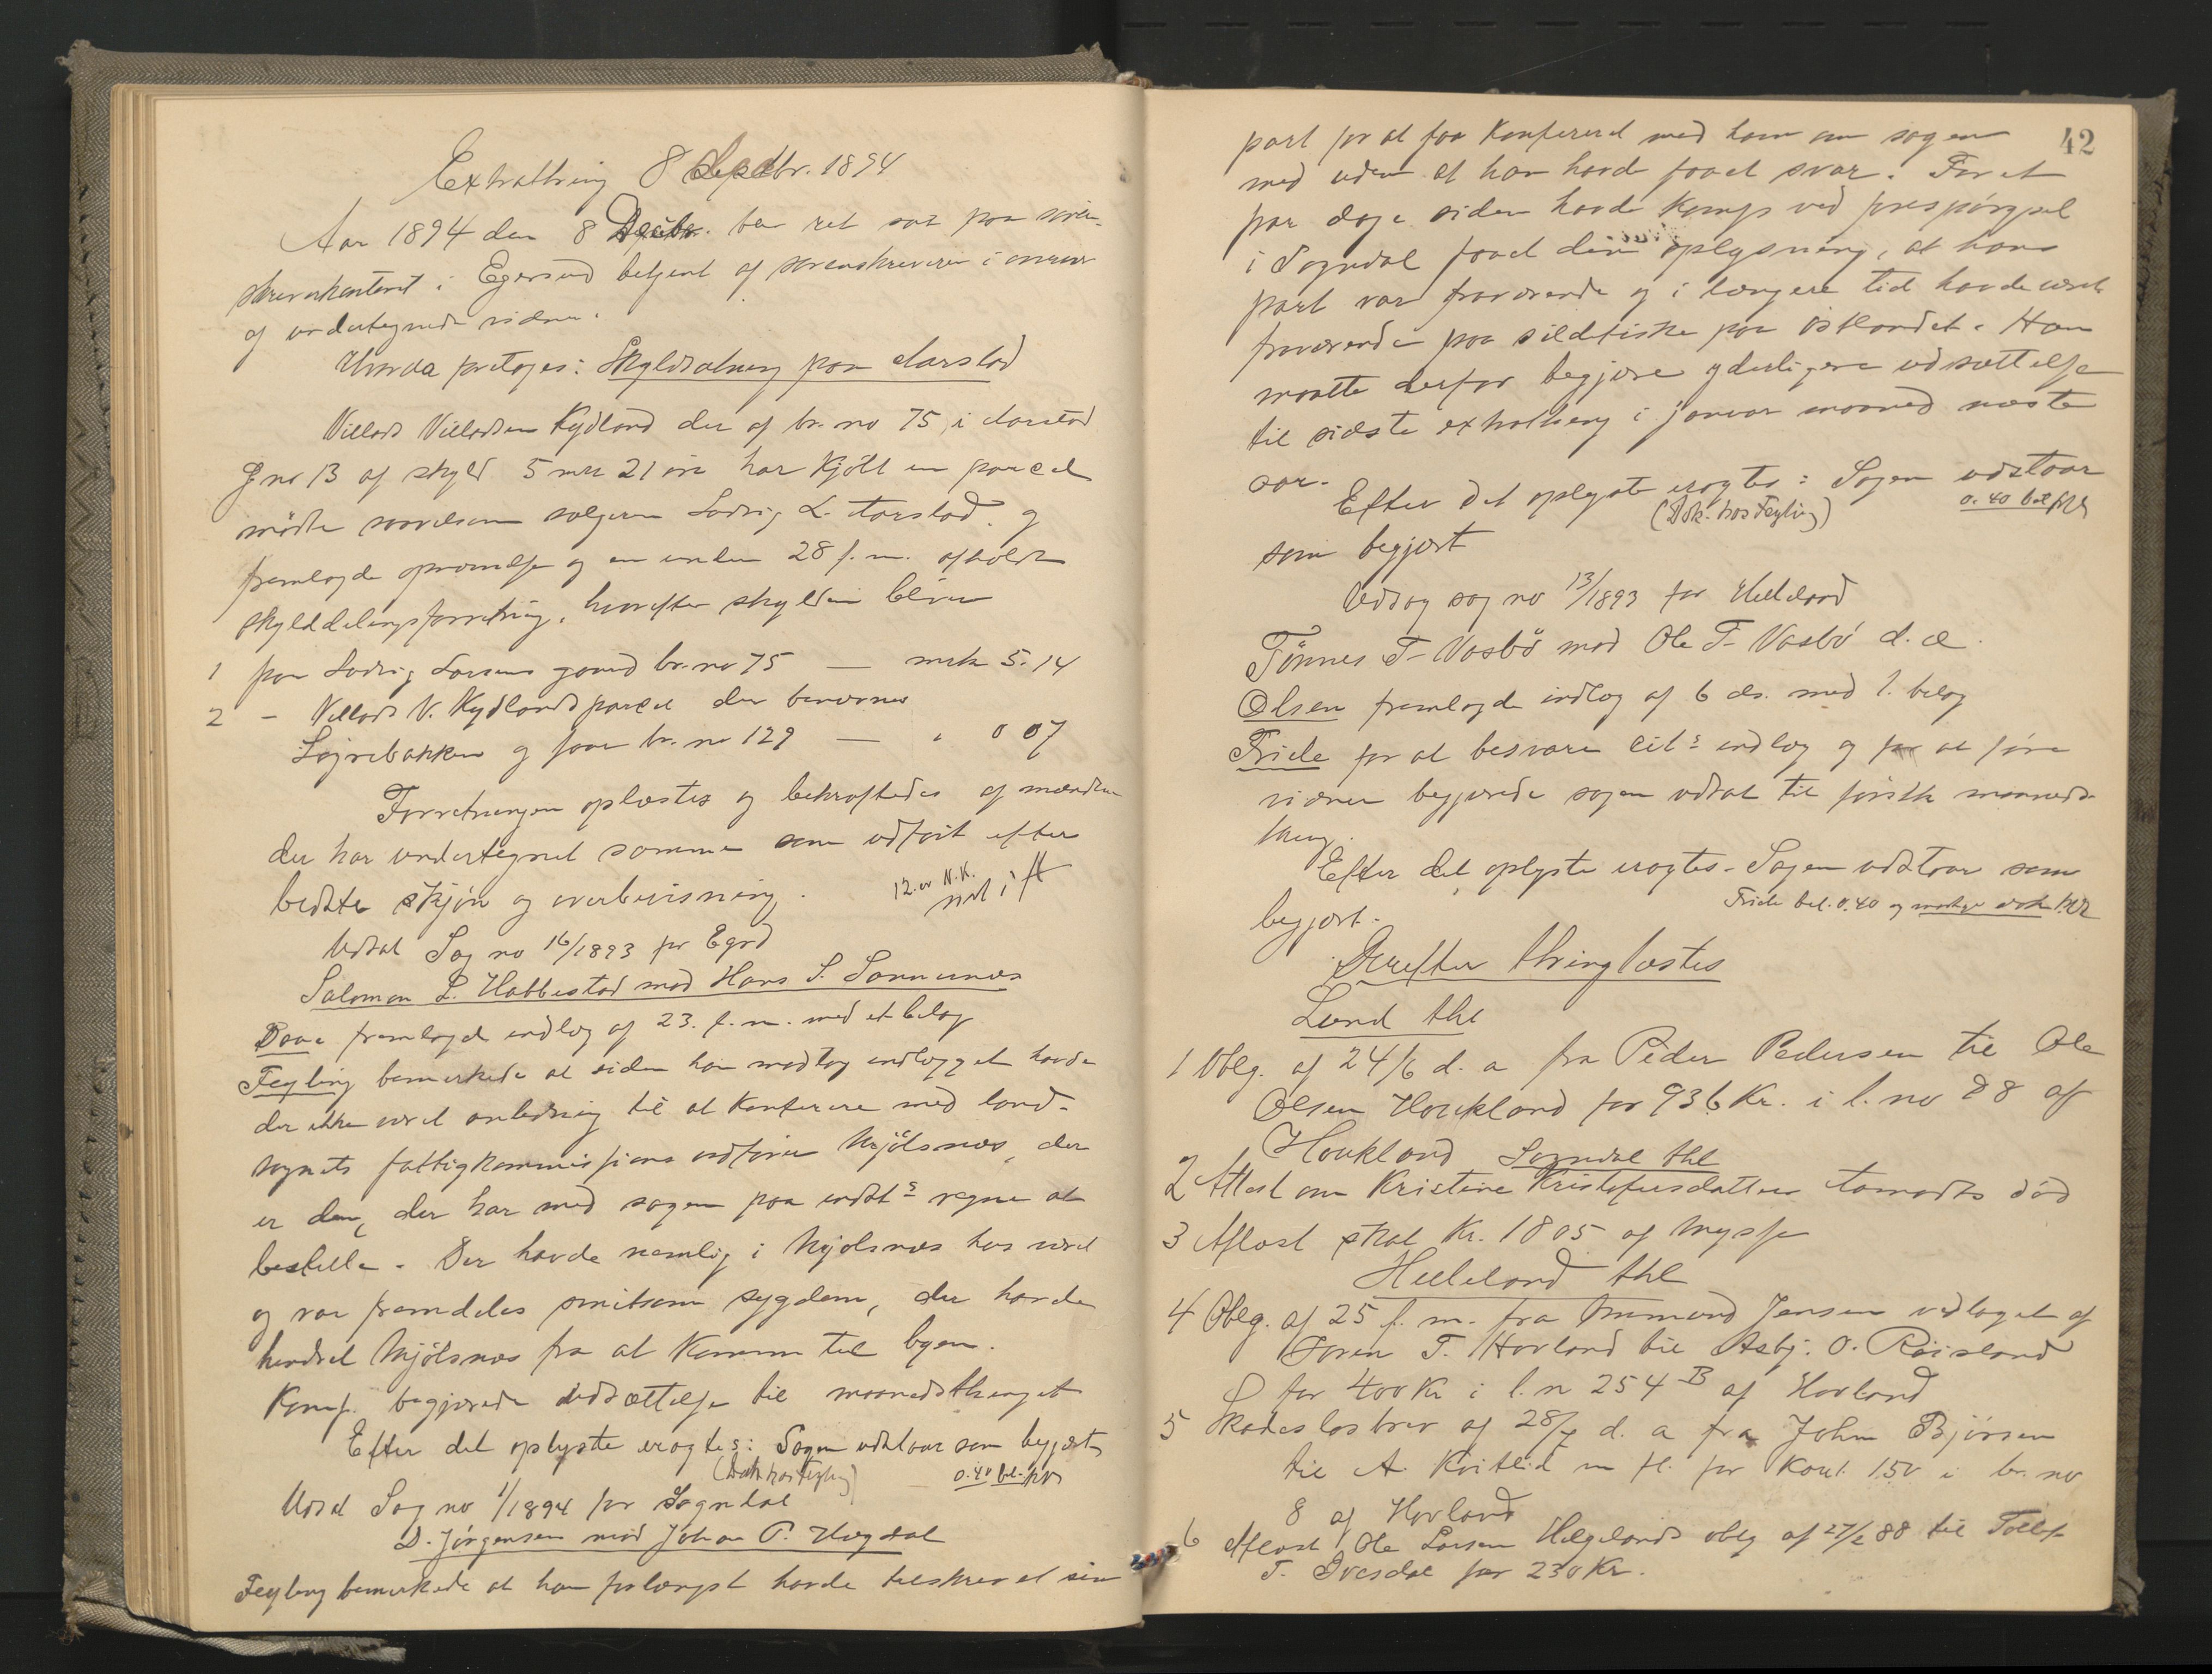 Extrathing 8 Decbr. 1894
Aar 1894 den 8 Decbr. blev ret sat paa soren-
skriverkontoret i Egersund betjent af sorenskriveren i
og undertegnede vidner.
Hvorda foretoges: Skyldsætning paa Aarstad
Villads Villadsen Kydland der af br. no 75 i Aarstad
G no 13 af skyld 5 mrk 21 öre har kjöbt en parcel
mødte saavelsom sælgeren Ludvig L. Aarstad og
fremlagde opnævnelse og en under 28 f. m. afholdt
skylddelingsforretning, hvorefter skylden bliver
1 paa Ludvig Larsens gaard br. no 75 — mrk 5.14
2 - Villads V. Kydlands parcel der benævnes
Løgrebakken og faar br. no 129 — " 0 07
Forretningen oplæstes og bekræftedes af mændene
der har undertegnet samme som udført efter
bedste skjøn og overbevisning.
12. er N.K.
Udsat Sag no 16/1893 for Egrd
Salomon L. Habbestad mod Hans S. Sannesnæs
Daae fremlagde indlæg af 23. f. m. med et bilag
Feyling bemærkede at siden han modtog indlægget havde
der ikke været anledning til at konferere med land-
sognets fattigkommissions ordfører Mjölsnæs, der
er den, der har med sagen paa indst.s vegne at
bestille. Der havde nemlig i Mjölsnæs hus været
og var fremdeles smitsom sygdom, der havde
hindret Mjölsnæs fra at komme til byen.
Komp. begjærede udsættelse til maanedsthinget
Efter det oplyste eragtes: Sagen udstaar som begjært
(Dok. hos Feyling) 0.40 bet.
Udsat Sag no 1/1894 for Sogndal
D. Jørgensen mod Johan P. Hægdal
Feyling bemærkede at han forlængst havde tilskrevet sin
42
part for at faa konfereret med ham om sagen
med uden at han havde faaet svar. For et
par dage siden havde komp. ved forespørgsel
i Sogndal faaet den oplysning, at hans
part var fraværende og i længere tid havde været
fraværende paa sildefiske paa östlandet. Han
maatte derfor begjære yderligere udsættelse
til sidste extrathing i januar maaned næste
aar.
Efter det oplyste eragtes: Sagen udstaar
(Dok. hos Feyling) 0.40 bet.
som begjært
Udsat sag no 13/1893 for Helleland
Tönnes T. Vasbö mod Ole T. Vasbö d. æ.
Olsen fremlagde indlæg af 6 ds. med 1. bilag
Friele for at besvare cit.s indlæg og for at føre
vidner begjærede sagen udsat til første maaneds-
thing.
Efter det oplyste eragtes. Sagen udstaar som
Friele bet. 0.40 og
begjært.
Derefter thinglæstes
Lund thl
1 Oblg. af 24/6 d. a fra Peder Pedersen til Ole
Olsen Haukland for 936 Kr. i l. no 88 af
Haukland Sogndal thl
2 Attest om Kristine Kristofersdatter død
3 Aflæst skat Kr. 1805 af
Helleland thl
4 Oblg. af 25 f. m. fra Ommund Jensen vedtaget af
Soren T. Hovland til Asbj. O. Røisland
for 400 Kr i l. n 254 B af Hovland
5 Skadesløsbrev af 28/7 d. a fra John Bjørnsen
til A. Kvitlid m fl. for Kaut. 150 i br. no
8 af Hovland
6 Aflæst Ole Larsen Helgelands oblg af 27/2 88 til Tollef
T. Ovesdal for 230 Kr.